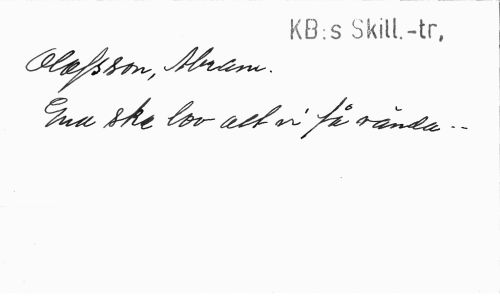 KB:s Skill.-tr,
Olofsson, Abram.
Gud ske lov att vi få vända --